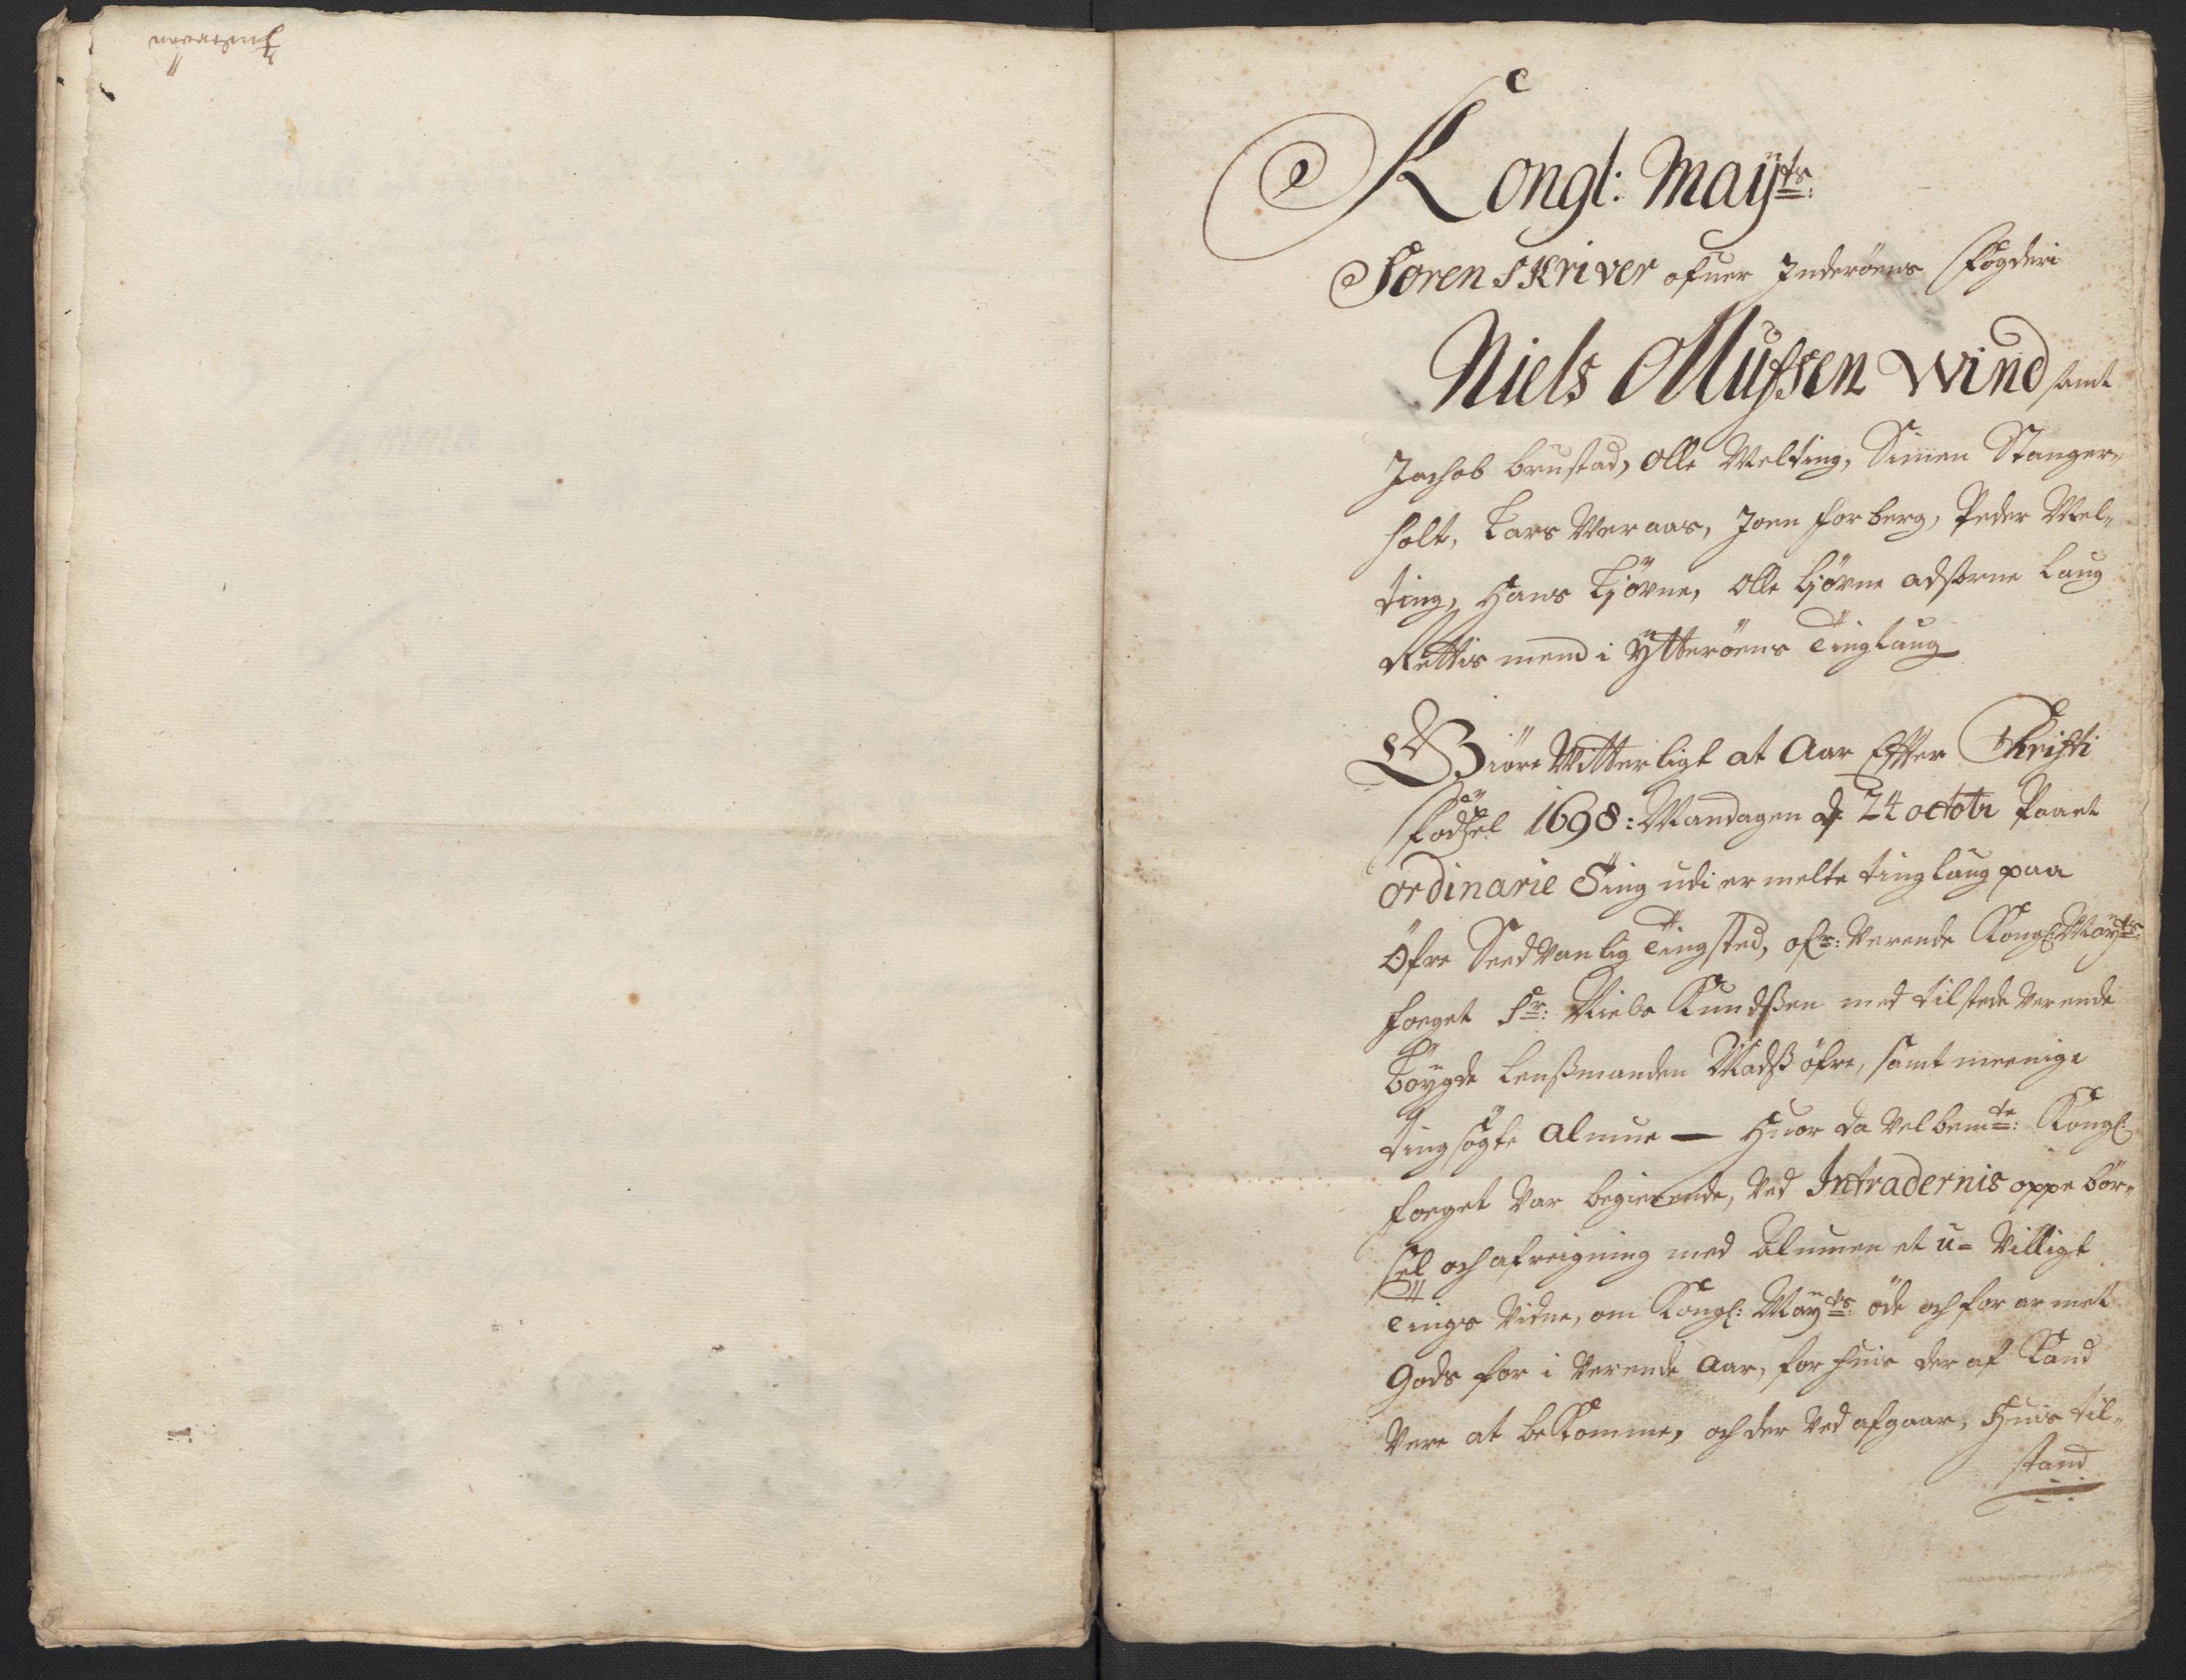 Kongl: Maÿts:
Soren Skriver ofuer Inderöens Fögderi
Niels Ollufssen Wind samt
Jachob Brustad, Olle Welding, Simen Stanger„
holt, Lars Weraas, Joen Forberg, Peder Wel„
ding, Hans Biörne, Olle Biörne adsorne Laug
Rettis mend i Ÿtteröens Tinglaug
Giöre Witterligt at Aar Effter Christi
Födsel 1698: Mandagen d: 24 octobr Paa et
ordinarie Ting udi ermelte tinglaug paa
Öfre Seedvanlig Tingsted, ofr: Verende Kongl: Maÿts:
foeget Sr: Niels Knudssen med tilstede Verende
Böÿgde Lenssmanden Madss öfre, samt meenige
tingsögte Almue — Huor da Velbemte: Kongl:
foeget Var begierende, Ved Intradernis oppebör„
sel och afreigning med Almuen et u= Villigt
Tings Vidne, om Kongl: Maÿts: öde och forarmet
Gods for i Verende Aar, for huis der af Kand
Vere at bekomme, och der Ved afgaar, Huis til„
stand